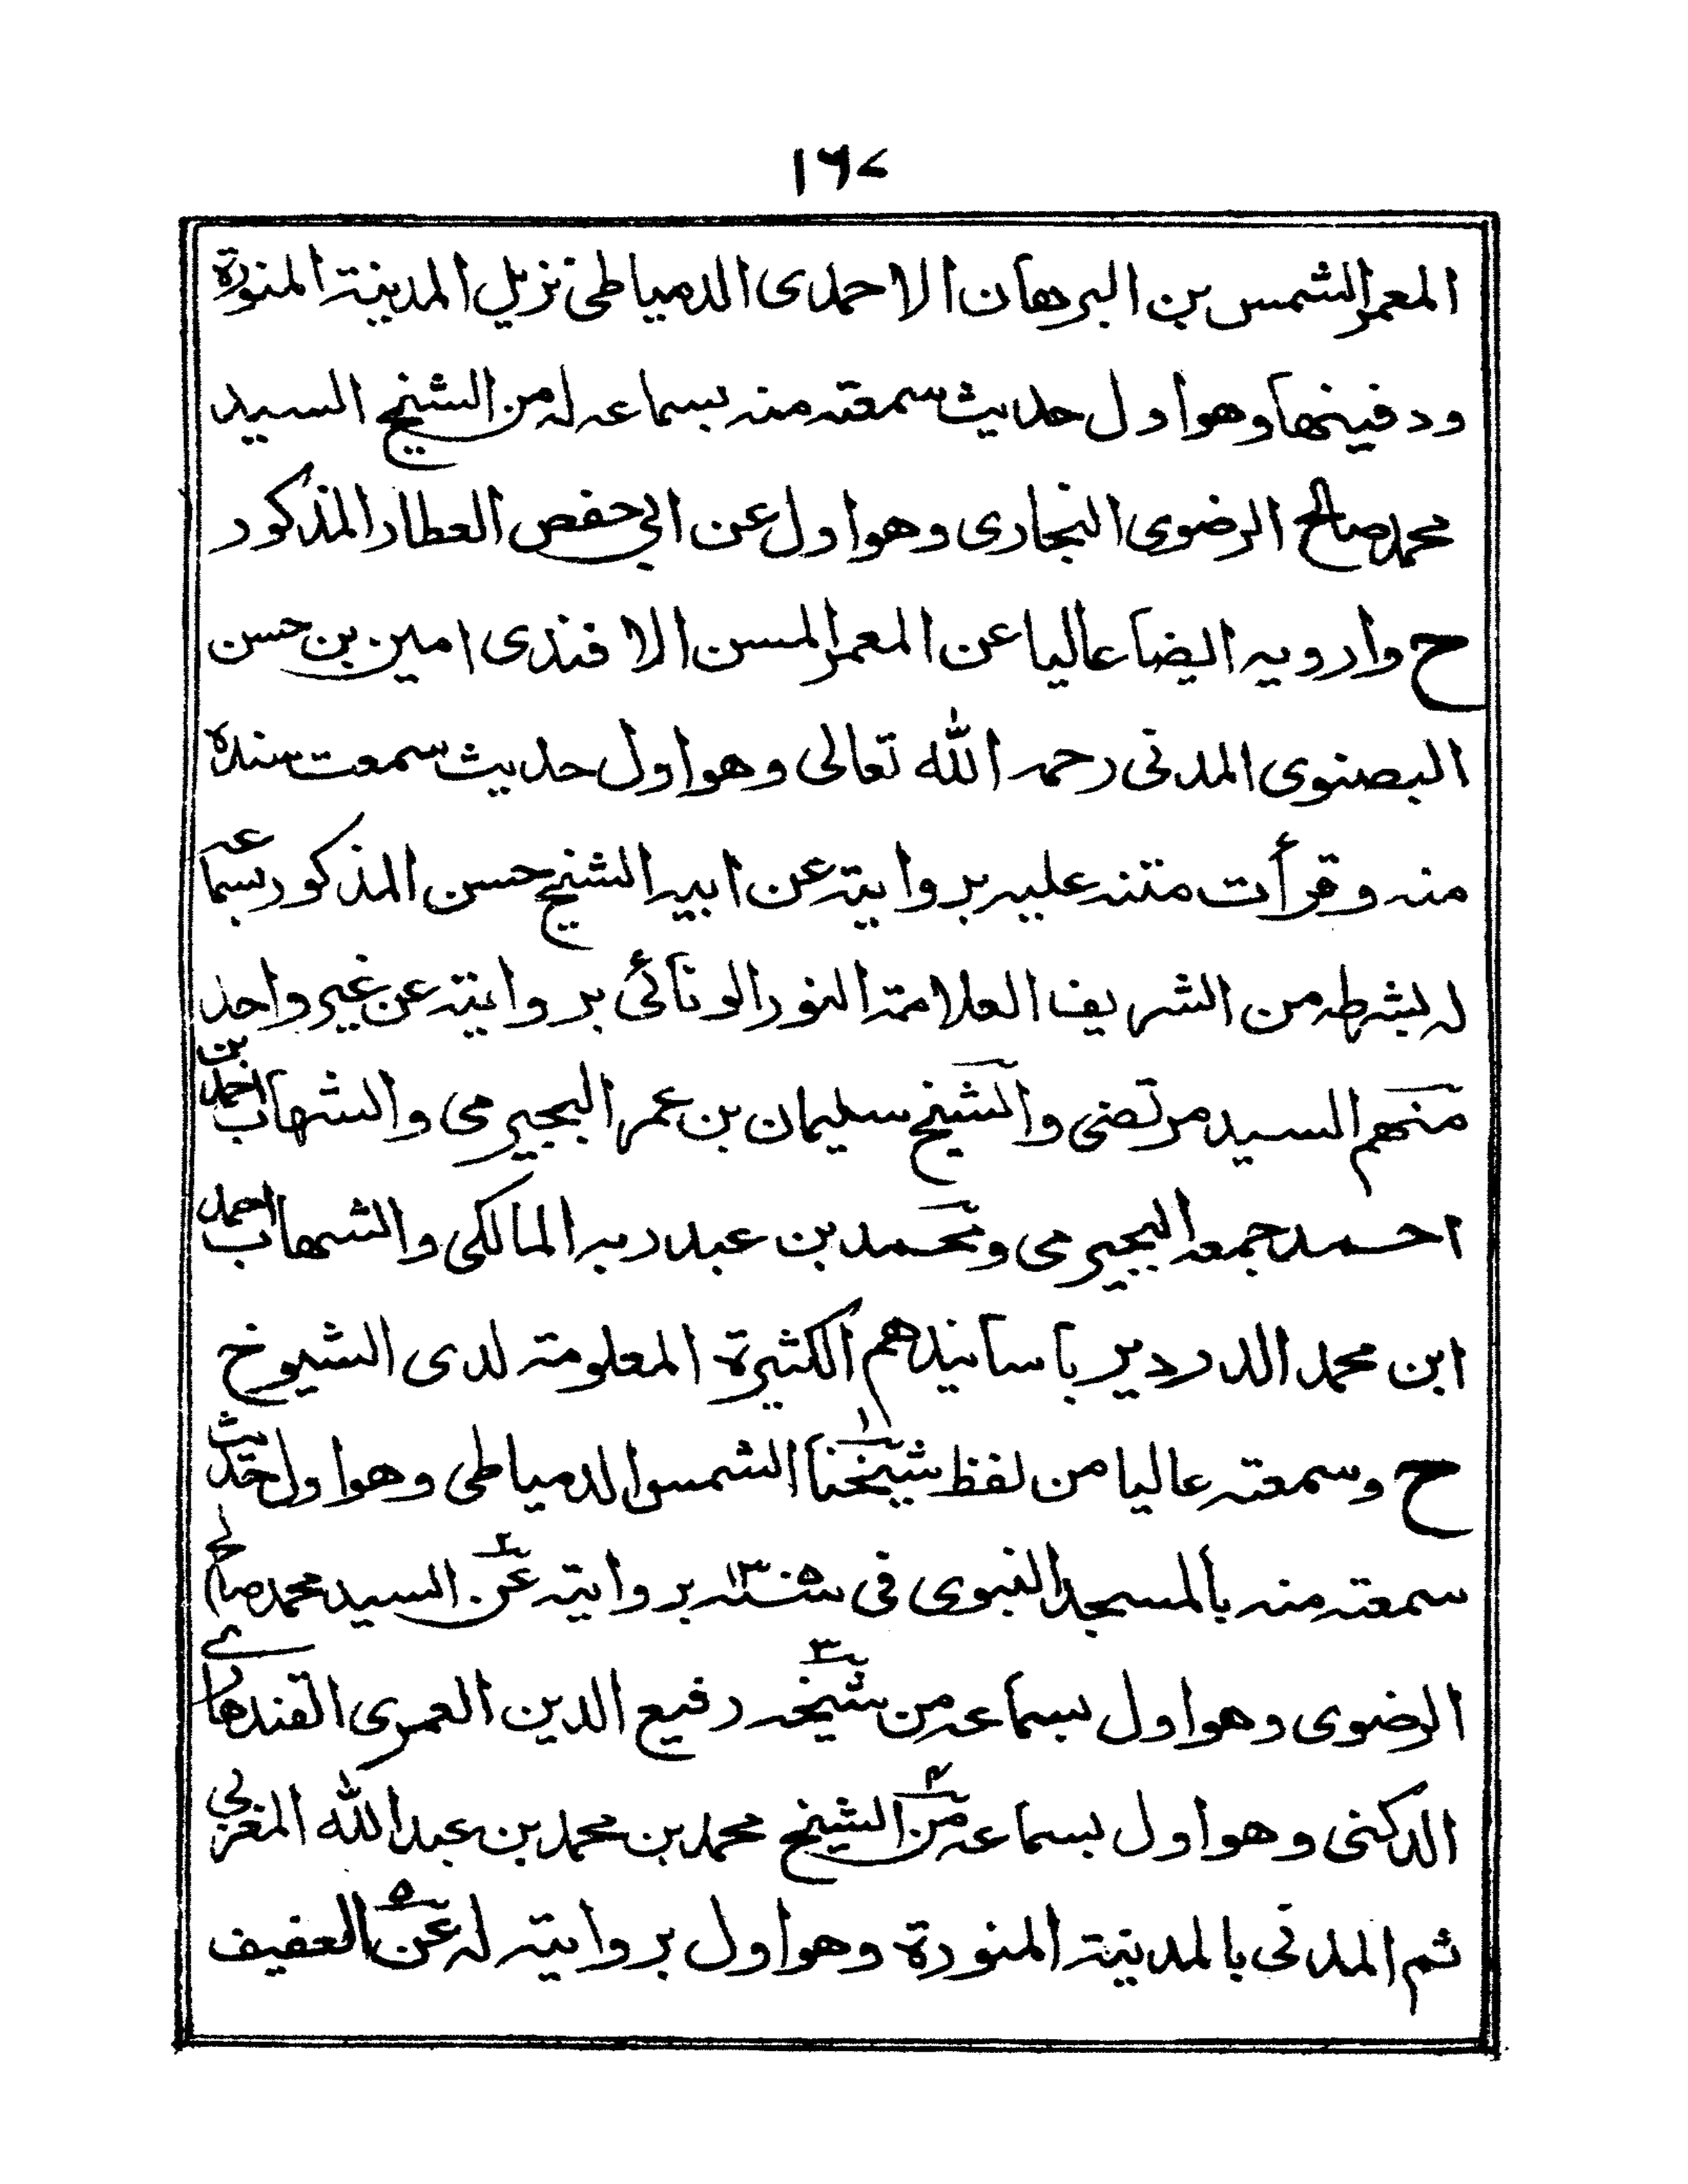 ١٦٧
المعمر الشمس بن البرهان الاحمدى الدمياطى نزيل المدينة المنورة
ودفينها وهو اول حديث سمعته منه بسماعه له من الشيخ السيد
محمد صالح الرضوى البخارى وهو اول عن ابي حفص العطار المذكور
ح وارويه ايضا عاليا عن المعمر المسن الافندى امين بن حسن
البصنوى المدنى رحمه الله تعالى وهو اول حديث سمعت سنده
منه وقرأت متنه عليه بروايته عن ابيه الشيخ حسن المذكور بسماعه
له بشرطه من الشريف العلامة النور الونائى بروايته عن غير واحد
منهم السيد مرتضى والشيخ سليمان بن عمر البجيرمى والشهاب احمد بن
احمد جمعه البجيرمى ومحمد بن عبد ربه المالكى والشهاب احمد
ابن محمد الدردير باسانيدهم الكثيرة المعلومة لدى الشيوخ
ح وسمعته عاليا من لفظ شيخنا١ الشمس الدمياطى وهو اول حديث
سمعته منه بالمسجد النبوى فى سنة بروايته عن٢ السيد محمد صالح
الرضوى وهو اول بسماعه من شيخه٣ رفيع الدين العمرى القندهارى
الدكنى وهو اول بسماعه من٤ الشيخ محمد بن محمد بن عبد الله المغربي
ثم المدنى بالمدينة المنورة وهو اول بروايته له عن٥ العفيف